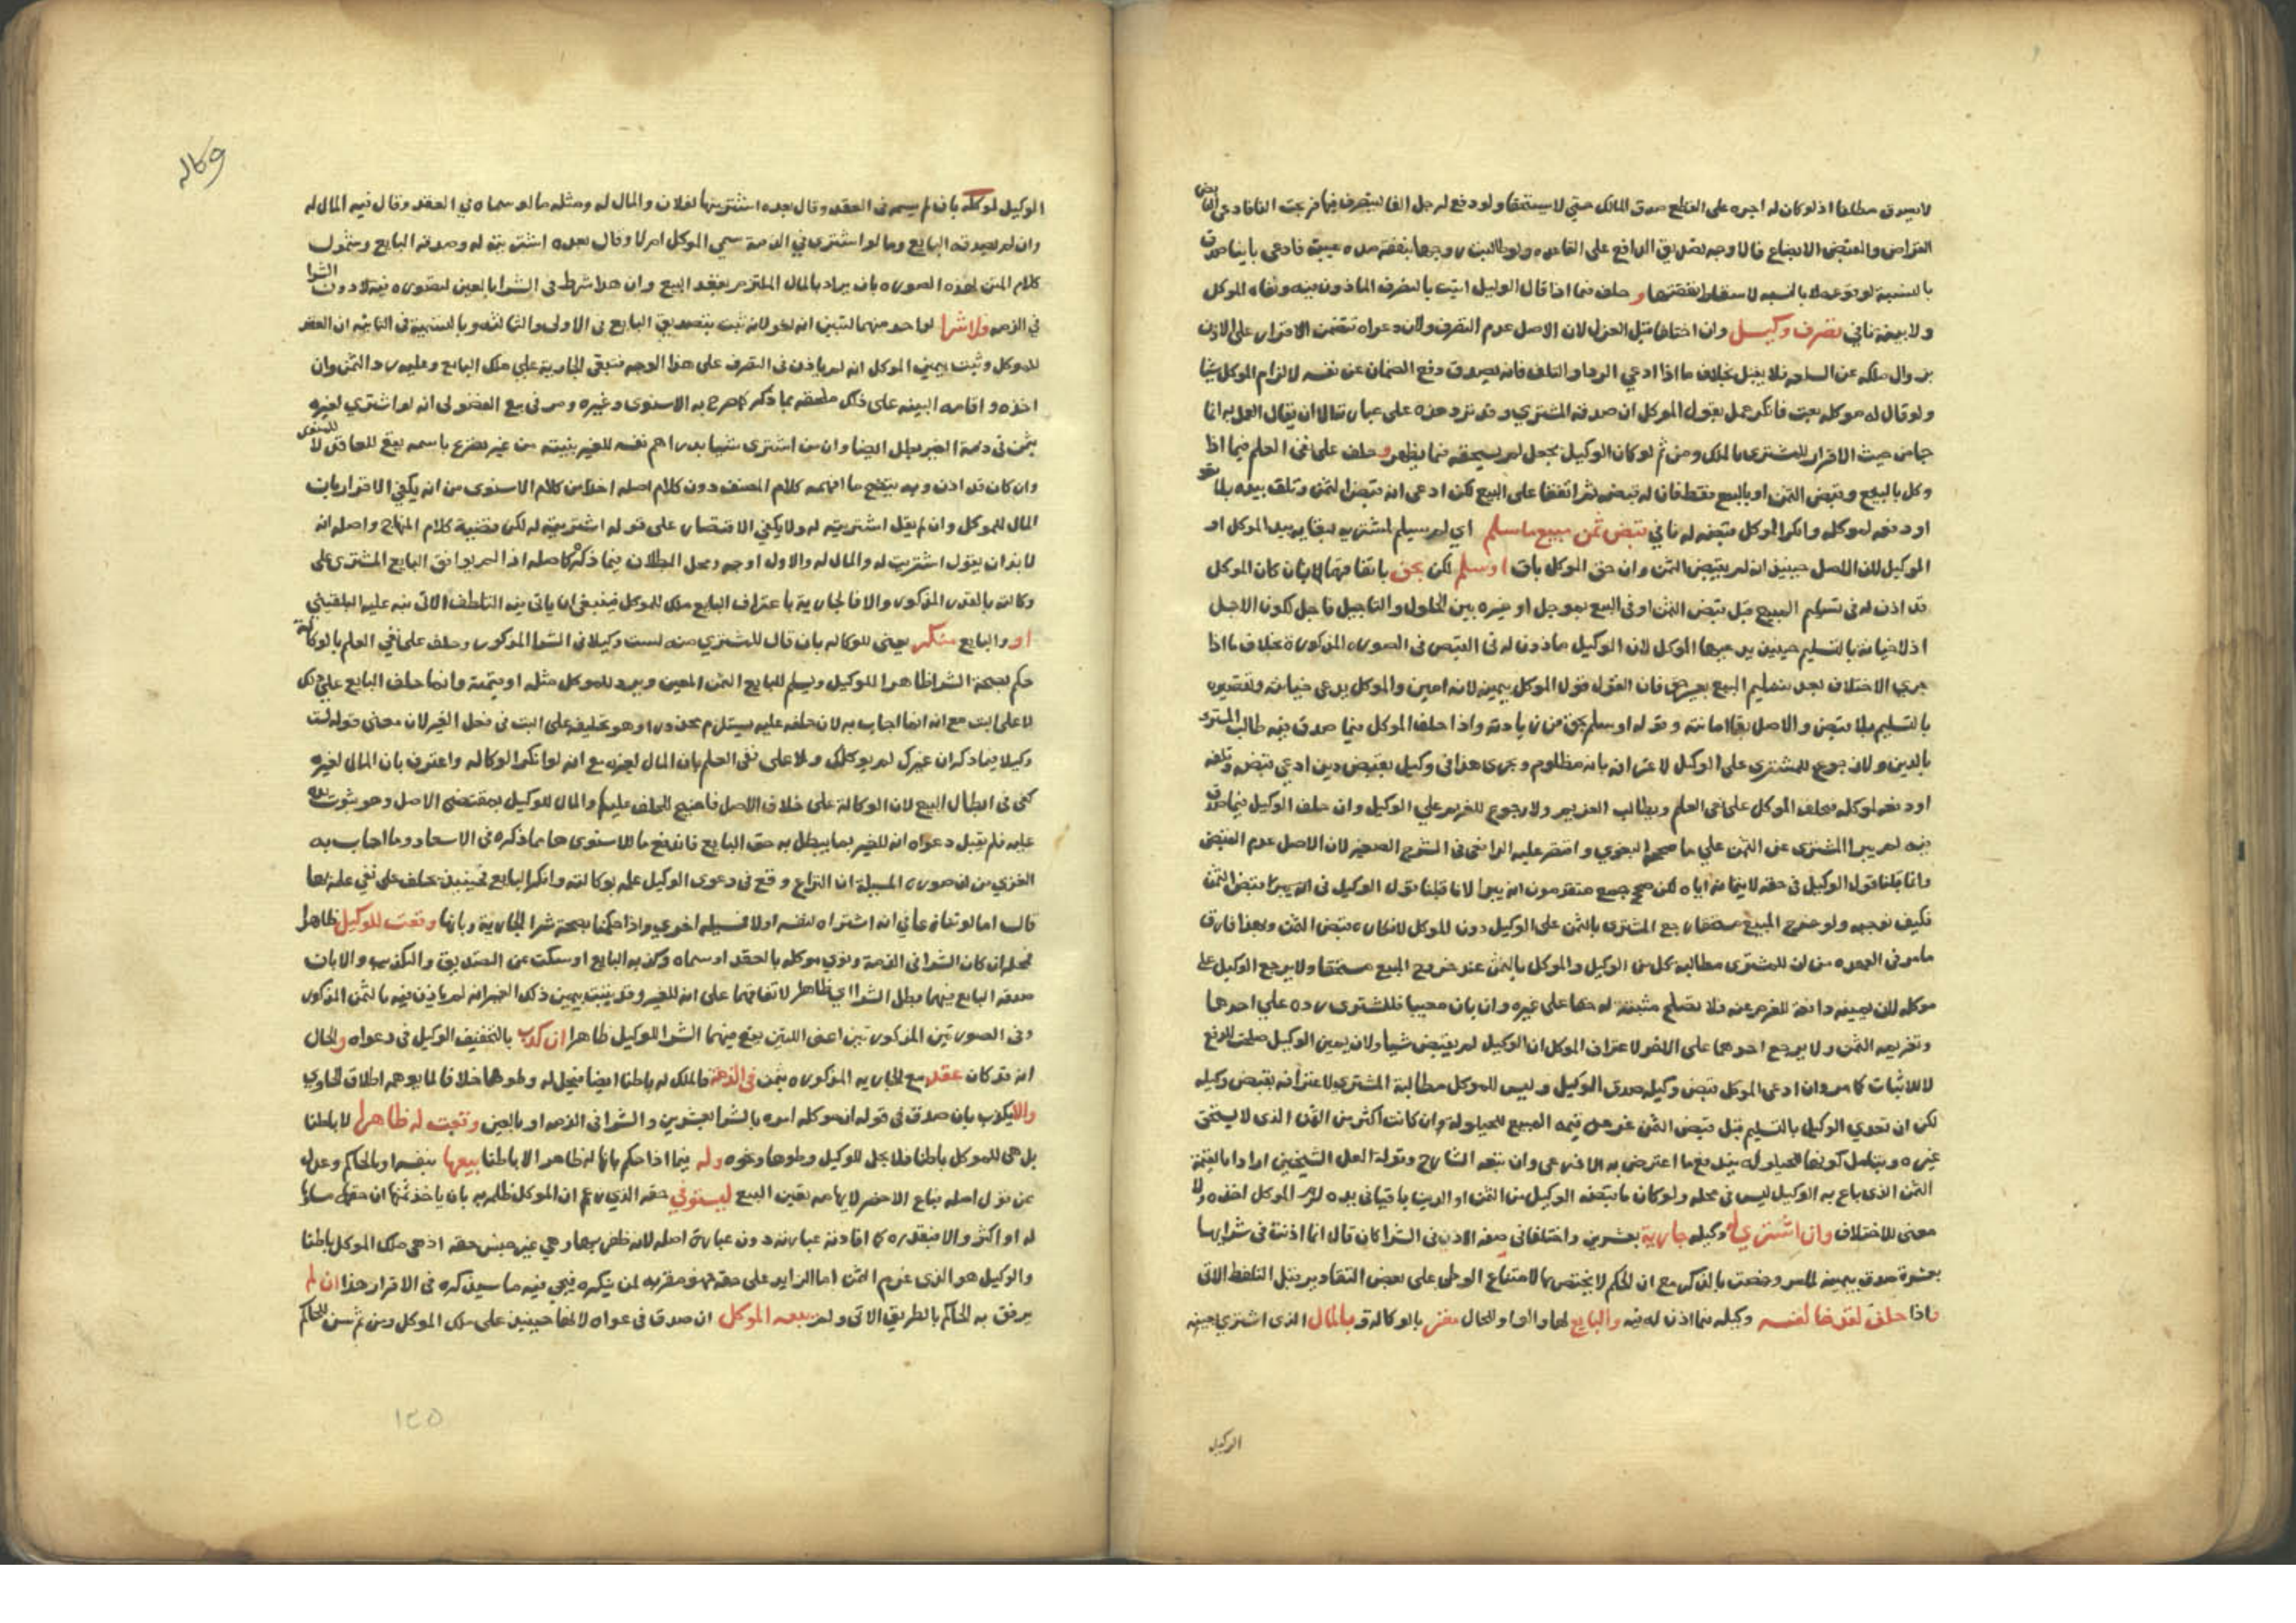 لا يصدق مطلقا اذ لو كان له اجره على القطع صدق المالك حتى لا يستحقها ولو دفع لرجل الفا ليتصرف فيها فربحت الفا فادعى
القراض والمقبض الابضاع فالاوجه تصديق الدافع على القاعده ولو طالبت زوجها بنفقة مده غيبته فادعى
بالنسبة لوقوعه لا بالنسبه لاسقاط نفقتها و حلف فيما اذا قال الوكيل اتيت بالتصرف الماذون فيه ونفاه الموكل
ولا بينة نافي تصرف وكيل وان اختلفا قبل العزل لان الاصل عدم التصرف ولان دعواه تتضمن الاقرار على الاذن
بزوال ملكه عن السلعه فلا يقبل بخلاف ما اذا ادعي الرد او التلف فانه يصدق دفع الضمان عن نفسه لا الزام الموكل شيا
ولو قال له موكله بعت فانكر عمل بقول الموكل ان صدقه المشتري وقد ترد هذه على عبارته الا ان يقال العمل به انما
جا من حيث الاقرار للمشتري بالملك ومن ثم لو كان الوكيل بجعل لم يستحقه فيما يظهر و حلف على نفي العلم فيما اذا
وكل بالبيع وقبض الثمن او بالبيع فقط فان له قبضه ثم اتفقا على البيع لكن ادعى انه قبض الثمن وتلف بيده
او دفعه لموكله وانكر الموكل قبضه له نافي قبض ثمن مبيع ما سلم اي لم يسلم لمشتريه لبقايه بيد الموكل او
الوكيل لان الاصل حينيذ انه لم يقبض الثمن وان حق الموكل باق او سلم لكن بحق باتفاقهما لا بان كان الموكل
قد اذن له في تسليم المبيع قبل قبض الثمن او في البيع بموجل او غيره بين الحلول والتاجيل فاجل لكون الاجل
اذ لا خيانة بالتسليم حينيذ يدعيها الموكل لان الوكيل ماذون له في القبض في الصوره المذكورة بخلاف ما اذا
جري الاختلاف بعد تسليم المبيع بغير حق فان القول قول الموكل بيمين لانه امين والموكل يدعى خيانته وتقصيره
بالتسليم بلا قبض والاصل بقا امانته وقوله او سلم بحق من زيادته واذا حلف الموكل فيما صدق فيه طالب المشتري
بالدين ولا رجوع للمشتري على الوكيل لاعترافه بانه مظلوم ويجري هذا في وكيل بقبض دين ادعي قبضه وتلفه
او دفعه لموكله فحلف الموكل على نفي العلم ويطالب الغريم ولا رجوع للغريم علي الوكيل وان حلف الوكيل فيما صدق
فيه لم يبرا المشتري عن الثمن علي ما صححه البغوي واقتصر عليه الرافعي في الشرح الصغير لان الاصل عدم القبض
وانما قبلنا قول الوكيل في حقه لايتمانه اياه لكن صحح جمع متقدمون انه يبرا لانا قبلنا قول الوكيل في انه قبض الثمن
فكيف نوجبه ولو خرج المبيع مستحقا رجع المشتري بالثمن على الوكيل دون الموكل لانكاره قبض الثمن وبهذا فارق
ما مر في العهده من ان للمشتري مطالبة كل من الوكيل والموكل بالثمن عند خروج المبيع مستحقا ولا يرجع الوكيل على
موكله لان يمينه دافعة للغرم عنه فلا تصلح مثبتة له حقا على غيره وان بان معيبا فللمشتري رده علي احدهما
وتغريمه الثمن ولا يرجع احدهما على الاخر لاعتراف الموكل ان الوكيل لم يقبض شيا ولان يمين الوكيل صلحت للدفع
لا للاثبات كما مر وان ادعى الموكل قبض وكيله صدق الوكيل وليس للموكل مطالبة المشتري لاعترافه بقبض وكيله
لكن ان تعدي الوكيل بالتسليم قبل قبض الثمن غرمه قيمه المبيع للحيلوله وان كانت اكثر من الثمن الذي لا يستحق
غيره ويتامل كونها للحيلوله يندفع ما اعترض به الاذرعي وان تبعه الشارح وقوله لعل الشيخين ارادا بالقيمة
الثمن الذي باع به الوكيل ليس في محله ولو كان ما قبضه الوكيل من الثمن او الدين باقيا في يده لزم الموكل اخذه ولا
معنى للاختلاف وان اشتري له وكيله جارية بعشرين واختلفا في صفة الاذن في الشرا كان قال انما اذنت في شرايها
بعشرة صدق بيمينه لما مر وخصت بالذكر مع ان الحكم لا يختص بها لامتناع الوطي على بعض التقادير قبل التلطف الاتي
فاذا حلف لغت خالفه وكيله فيما اذن له فيه والبايع لها والواو للحال مقر بالوكالة و بالمال الذي اشتري بعينه
الوكيل
وكاله
الوكيل لموكله بان لم يسمه في العقد وقال بعده اشتريتها لفلان والمال له ومثله ما لو سماه في العقد وقال فيه المال له
وان لم يصدقه البايع وما لو اشتري في الذمة سمي الموكل ام لا وقال بعده اشتريته له وصدقه البايع وشمول
كلام المتن لهذه الصوره بان يراد بالمال الملتزم بعقد البيع وان هذا شرط في الشرا بالعين لتصوره فيه لا دون الشرا
في الذمه فلا شرا لواحد منهما لتبين انه لغو لانه ثبت بتصديق البايع في الاولى والثالثه وبالتسمية في الثانيه ان العقد
للموكل وثبت بيمين الموكل انه لم ياذن في التصرف على هذا الوجه فتبقي الجارية علي ملك البايع وعليه رد الثمن وان
اخذه واقامه البينه على ذلك ملحقه بما ذكر كما صرح به الاسنوى وغيره ومر في بيع الفضولي انه لو اشتري لغيره
بثمن في ذمة الغير بطل ايضا وان من اشتري شيا بدراهم نفسه للغير بنيته من غير تصريح باسمه يقع للعاقد لا للمنوي
وان كان قد اذن وبه يتضح ما افهمه كلام المصنف دون كلام اصله اخذا من كلام الاسنوي من انه يكفي الاقرار بان
المال للموكل وان لم يقل اشتريته له ولا يكفي الاقتصار على قوله اشتريته له لكن قضية كلام المنهاج واصله انه
لا بد ان يقول اشتريت له والمال له والاول اوجه ومحل البطلان فيما ذكر كاصله اذا لم يوافق البايع المشتري على
وكالته بالقدر المذكور والا فالجارية باعتراف البايع ملك للموكل فينبغي ان ياتي فيه التلطف الاتي نبه عليه البلقيني
او والبايع منكر يعني للوكاله بان قال للمشتري منه لست وكيلا في الشرا المذكور وحلف على نفي العلم بالوكالة
حكم بصحة الشرا ظاهرا للوكيل ويسلم للبايع الثمن المعين ويرد للموكل مثله او قيمته وانما حلف البايع علي ذلك
لا على البت مع انه انما اجاب به لان حلفه عليه يستلزم محذورا وهو تحليفه على البت في فعل الغير لان معنى قوله لست
وكيلا فيما ذكر ان غيرك لم يوكلك ولا على نفي العلم بان المال لغيره مع انه لو انكر الوكاله واعترف بان المال لغيره
كفى في ابطال البيع لان الوكالة على خلاف الاصل فاحتيج للحلف عليها والمال للوكيل بمقتضى الاصل وهو ثبوت يده
عليه فلم تقبل دعواه انه للغير بما يبطل به حق البايع فاندفع ما للاسنوى هنا وما ذكره في الاسعاد وما اجاب به
الغزي من ان صورة المسيلة ان النزاع وقع في دعوى الوكيل علمه بوكالته وانكر البايع فحينيذ يحلف على نفي علمه بها
قال اما لو تنازعا في انه اشتراه لنفسه اولا فمسيله اخري واذا حكمنا بصحة شرا الجارية وبانها وقعت للوكيل ظاهرا
فمحله ان كان الشرا في الذمة ونوي موكله بالعقد او سماه وكذبه البايع او سكت عن التصديق والتكذيب والا بان
صدقه البايع فيهما بطل الشرا اي ظاهرا لاتفاقهما على انه للغير وقد ثبت بيمين ذلك الغير انه لم ياذن فيه بالثمن المذكور
وفي الصورتين المذكورتين اعنى اللتين يقع فيهما الشرا للوكيل ظاهرا ان كذب بالتخفيف الوكيل في دعواه و الحال
انه قد كان عقد مع الجاريه المذكوره بثمن في الذمة فالملك له باطنا ايضا فيحل له وطوها خلافا لما يوهمه اطلاق الحاوي
والا يكذب بان صدق في قوله ان موكله امره بالشرا بعشرين والشرا في الذمه او بالعين وقعت له ظاهرا لا باطنا
بل هي للموكل باطنا فلا يحل للوكيل وطوها ونحوه و له فيما اذا حكم بانها له ظاهرا لا باطنا بيعها بنفسه او بالحاكم وعدل
عن قول اصله يباع الاخضر لايهامه تعين البيع ليستوفي حقه الذي زعم ان الموكل ظلمه به بان ياخذ ثمنها ان حقه مساويا
له او اكثر والا فبقدره كما افادته عبارته دون عبارة اصله لانه ظفر بها وهي غير جنس حقه اذ هي ملك الموكل باطنا
والوكيل هو الذي غرم الثمن اما الزايد على حقه فهو مقر به لمن ينكره فيجي فيه ما سيذكره في الاقرار هذا ان لم
يرفق به الحاكم بالطريق الاتي ولم يبعه الموكل ان صدق في دعواه لانها حينيذ على ملك الموكل ومن ثم سن للحاكم
١٢٥